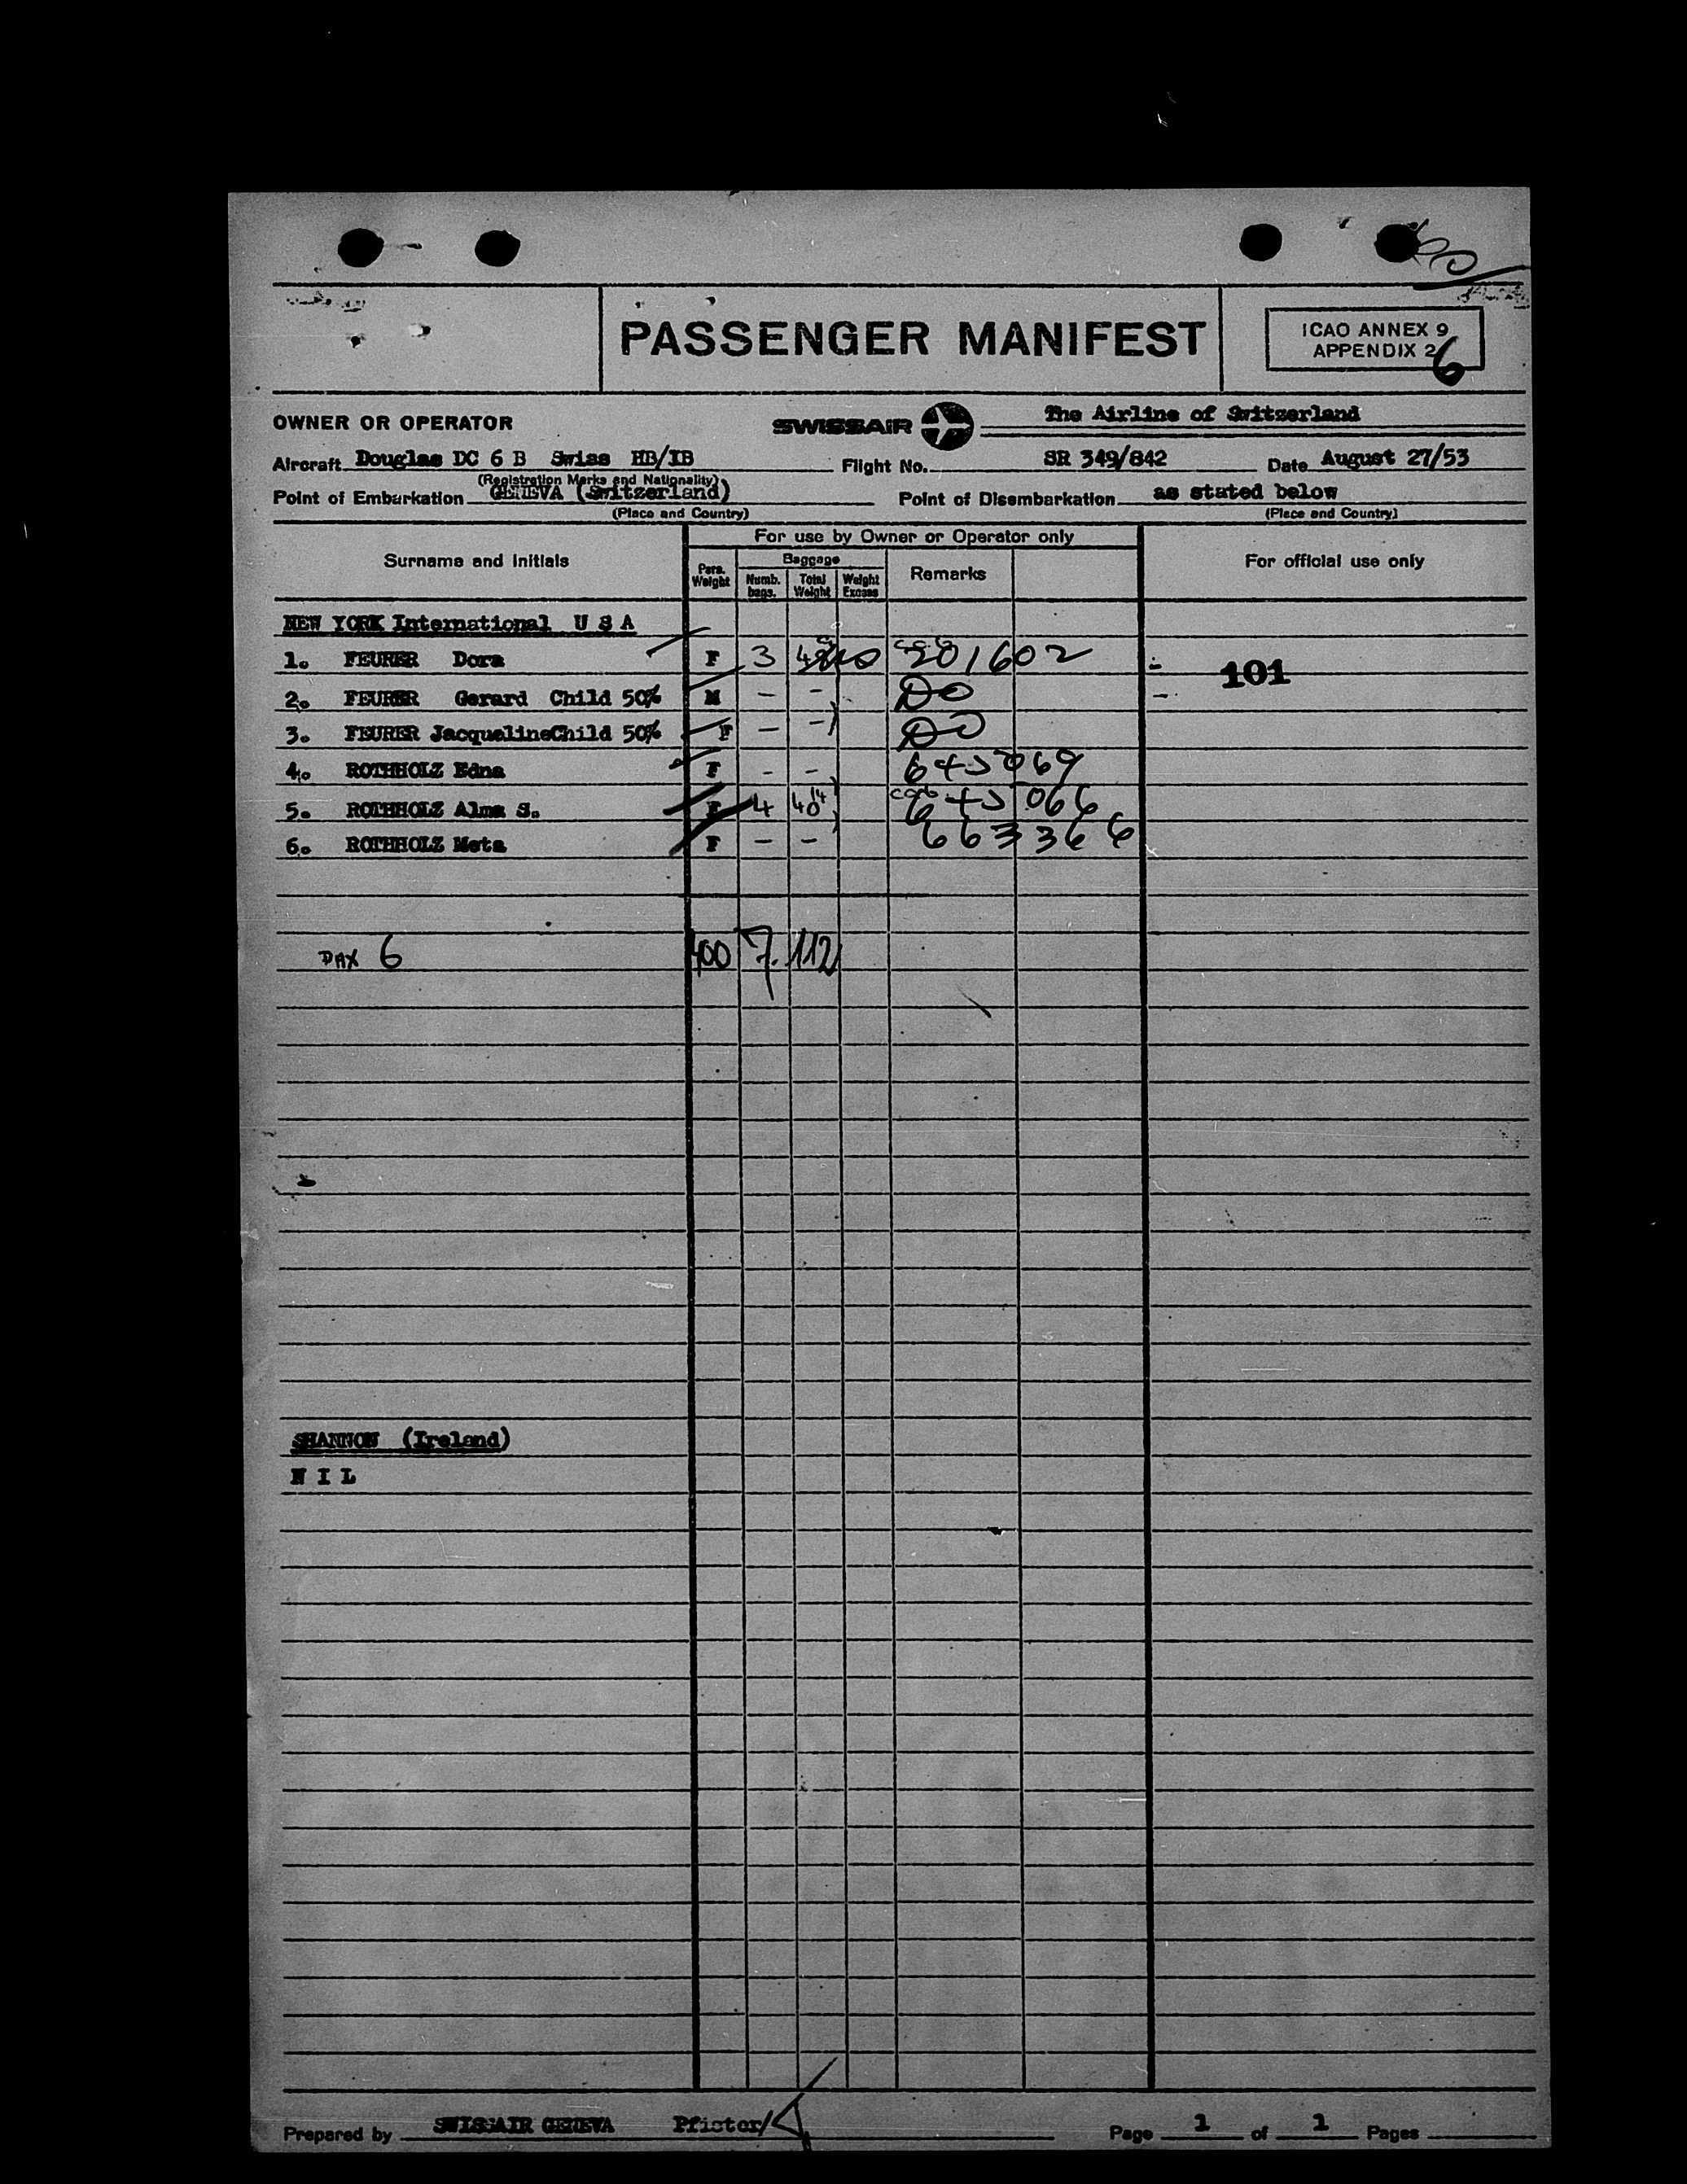 PASSENGER MANIFEST
ICAO ANNEX 9
APPENDIX 2
6
OWNER OR OPERATOR SWISSAIR The Airline of Switzerland
Aircraft Douglas DC 6 B Swiss HB/IB Flight No. SR 349/842 Date August 27/53
(Registration Marks and Nationality)
Point of Embarkation GENEVA (Switzerland) Point of Disembarkation as stated below
(Place and Country) (Place and Country)
For use by Owner or Operator only
Surname and Initials Pers. Weight Baggage Numb. bags. Total Weight Weight Excess Remarks For official use only
NEW YORK International U S A
1. FEURER Dora F 3 201602
101
2. FEURER Gerard Child 50% M - - DO
3. FEURER JacquelineChild 50% F - - DO
4. ROTHHOLZ Edna F - -
5. ROTHHOLZ Alma S. F 4 40
6. ROTHHOLZ Meta F - - 663366
PAX 6 400 7. 112
SHANNON (Ireland)
N I L
Prepared by SWISSAIR GENEVA Pfister/ Page 1 of 1 Pages